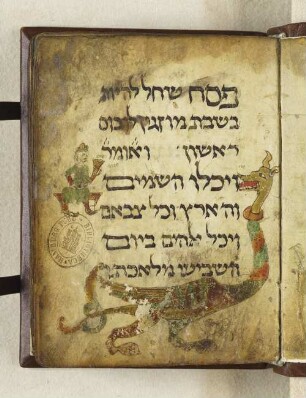 פסח שיחל להיות
בשבת מוזגין לו כוס
ראשון ואומר
ויכלו השמים
והארץ וכל צבאם
ויכל אלהים ביום
השביעי מלאכתו